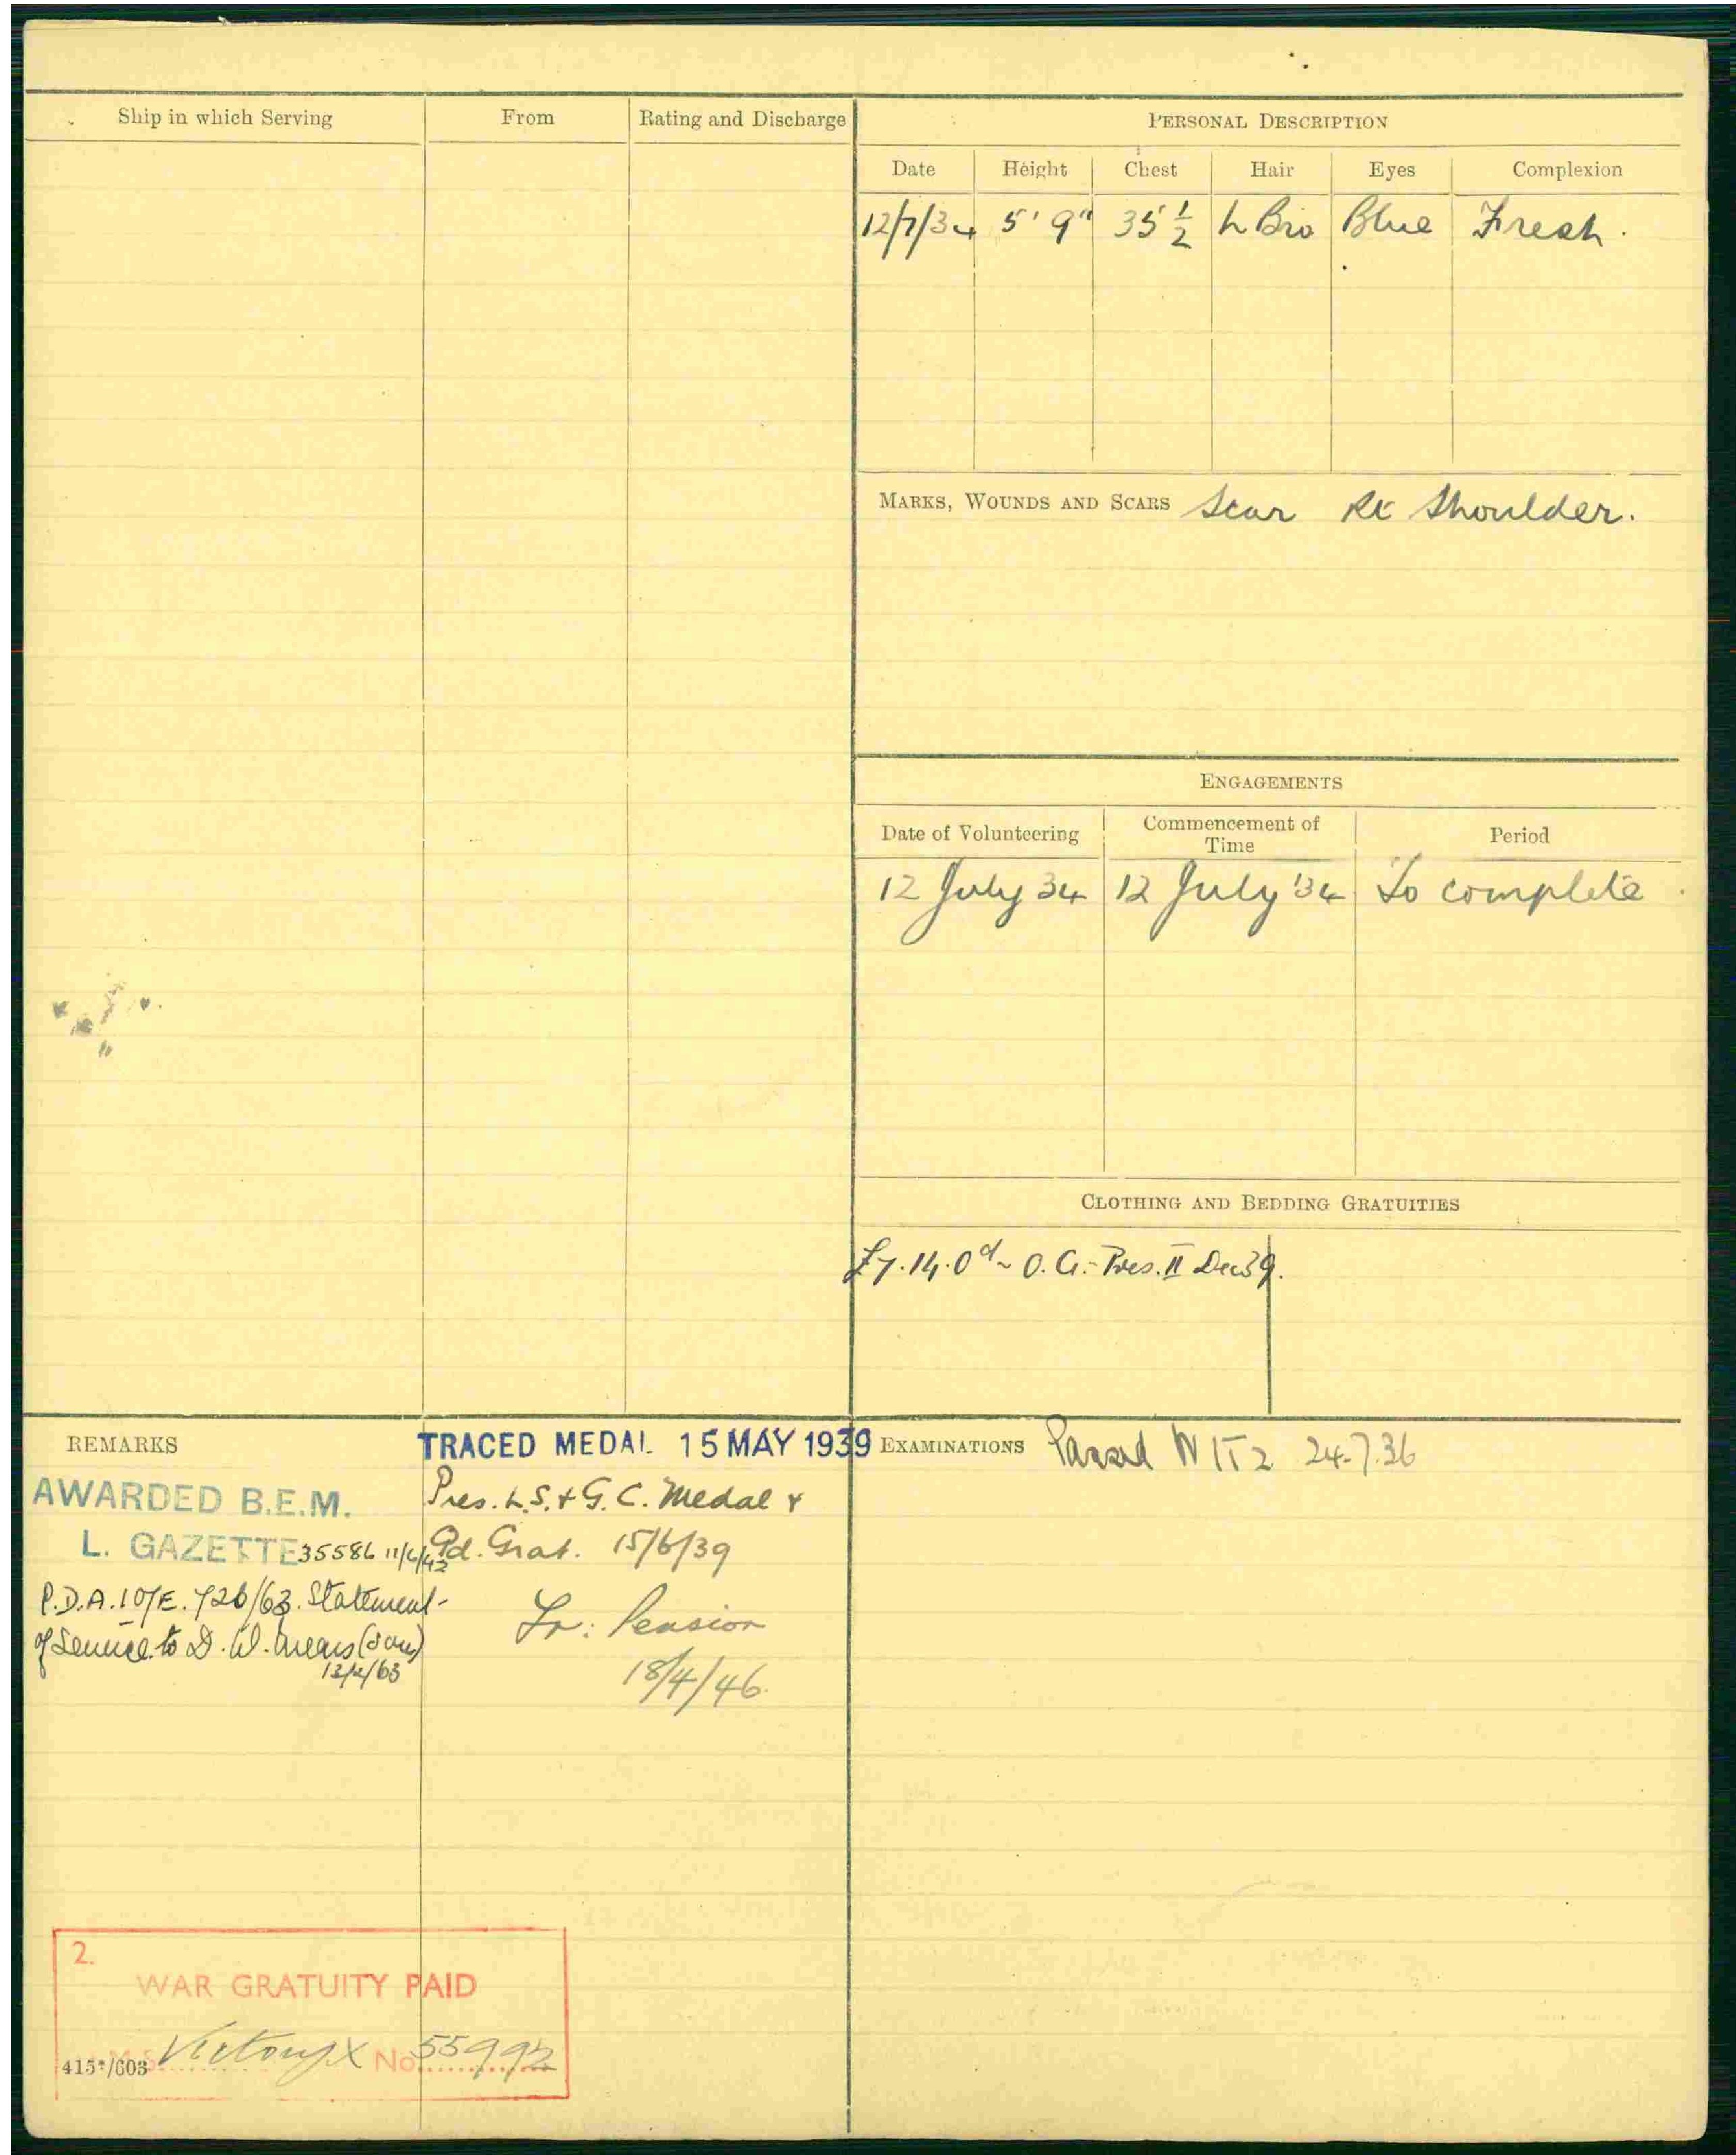 Ship in which Serving From Rating and Discharge
PERSONAL DESCRIPTION
Date Height Chest Hair Eyes Complexion
12/7/34 5' 9" 35 1/2 L Bro Blue Fresh.
MARKS, WOUNDS AND SCARS Scar Rt Shoulder.
ENGAGEMENTS
Date of Volunteering Commencement of Time Period
12 July 34 12 July '34 To complete
CLOTHING AND BEDDING GRATUITIES
£7.14.0d ~ O.A. Pres. II Dec 39.
REMARKS
TRACED MEDAL 15 MAY 1939
AWARDED B.E.M.
L. GAZETTE 35586 11/6/42
P.D.A.10/E.726/63. Statement
of Service to D. W. (son)
13/2/63
Pres. L.S. & G.C. Medal &
Gd. Grat. 15/6/39
Pension
18/4/46.
EXAMINATIONS Passed 24.7.36
2.
WAR GRATUITY PAID
H.M.S. Victory X No. 55992
415*/603